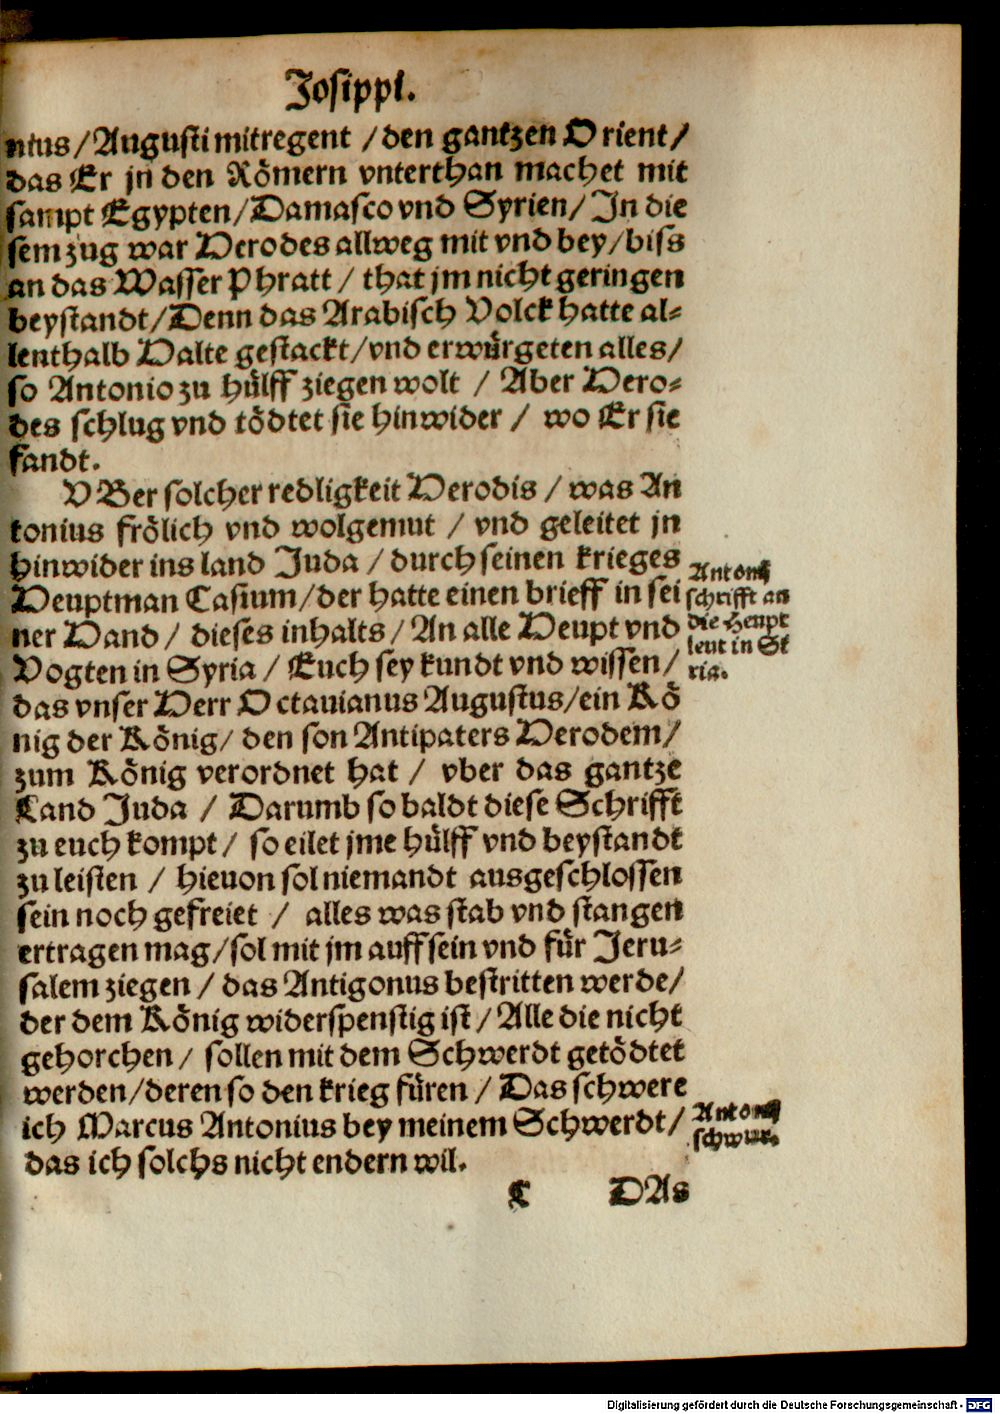 Josippi.
nius/Augusti mitregent /den gantzen Orient/
das Er jn den Römern vnterthan machet mit
sampt Egypten/Damasco vnd Syrien/ In die
sem zug war Herodes allweg mit vnd bey/biss
an das Wasser Phratt / that jm nicht geringen
beystandt/Denn das Arabisch Volck hatte al⸗
lenthalb Halte gestackt/vnd erwürgeten alles/
so Antonio zu hülff ziegen wolt / Aber Hero⸗
des schlug vnd tödtet sie hinwider / wo Er sie
fandt.
VBer solcher redligkeit Herodis / was An
tonius frölich vnd wolgemut / vnd geleitet jn
hinwider ins land Juda / durch seinen krieges
Heuptman Casium/der hatte einen brieff in sei
ner Hand / dieses inhalts / An alle Heupt vnd
Vogten in Syria / Euch sey kundt vnd wissen/
das vnser Herr Octauianus Augustus/ein Kö
nig der König/ den son Antipaters Herodem/
zum König verordnet hat / vber das gantze
Land Juda / Darumb so baldt diese Schrifft
zu euch kompt / so eilet jme hülff vnd beystandt
zu leisten / hieuon sol niemandt ausgeschlossen
sein noch gefreiet / alles was stab vnd stangen
ertragen mag/sol mit jm auff sein vnd für Jeru⸗
salem ziegen / das Antigonus bestritten werde/
der dem König widerspenstig ist / Alle die nicht
gehorchen / sollen mit dem Schwerdt getödtet
werden/deren so den krieg füren / Das schwere
ich Marcus Antonius bey meinem Schwerdt/
das ich solchs nicht endern wil.
Antonij
schrifft an
die Heupt
leut in Sy
ria.
Antonij
schwur.
C DAs
Digitalisierung gefördert durch die Deutsche Forschungsgemeinschaft - DFG